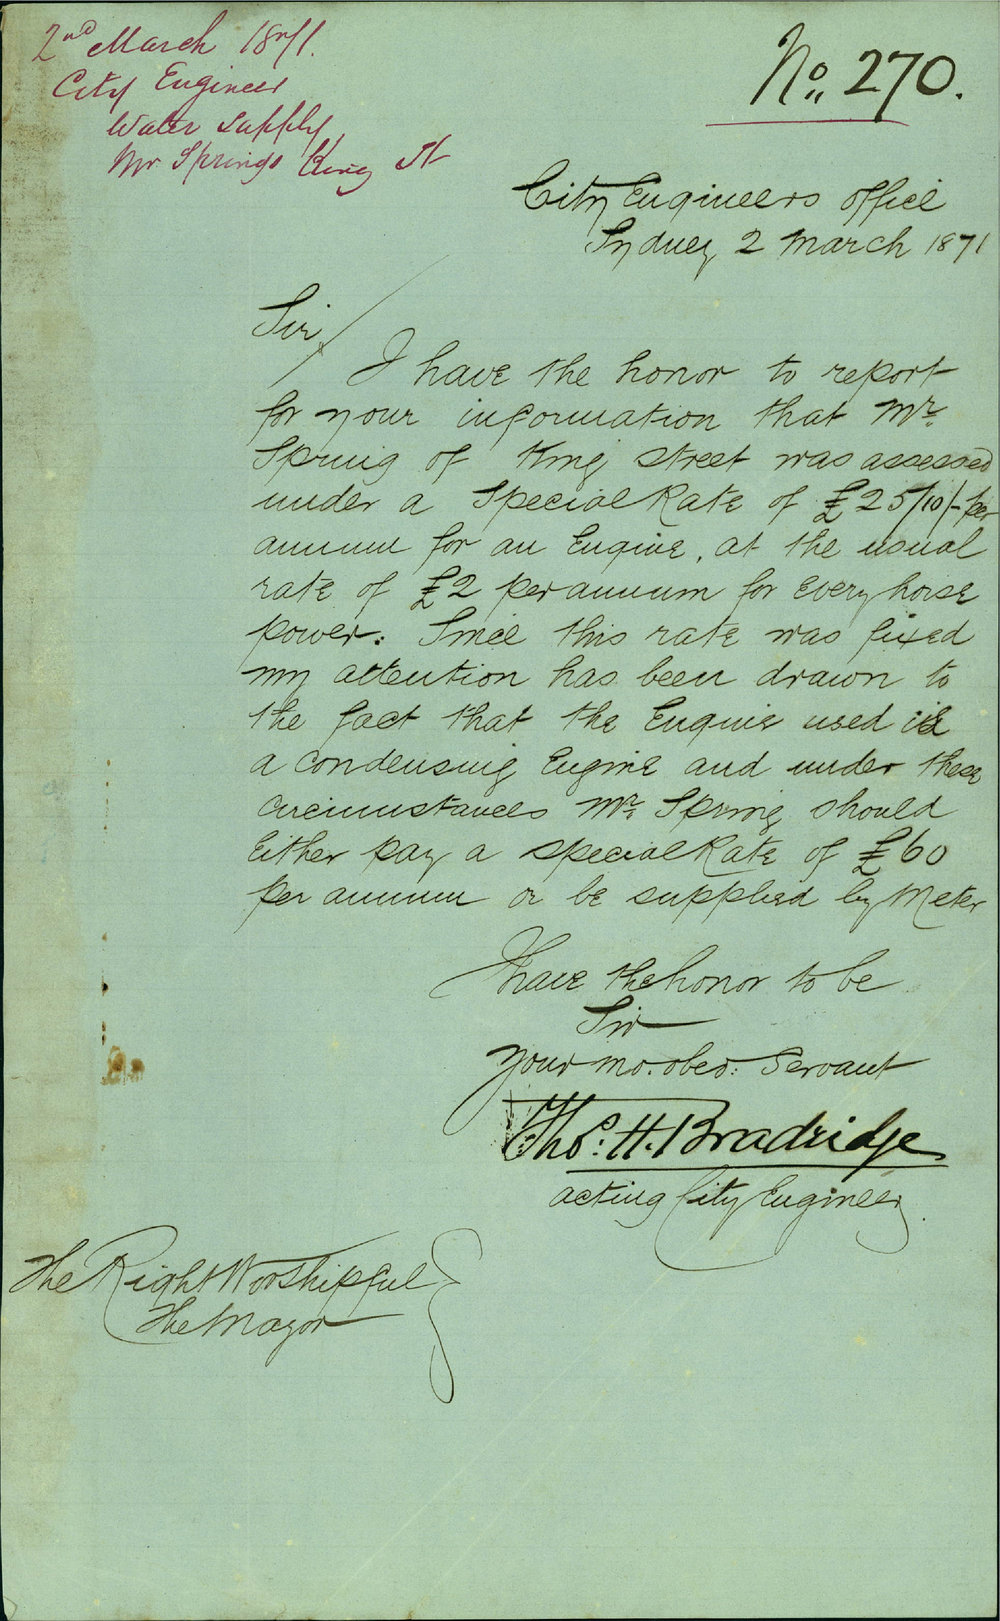 2nd March 1871.
City Engineer
Water Supply
Mr Springs King St
No. 270.
City Engineers office
Sydney 2 March 1871
Sir,
I have the honor to report
for your information that Mr.
Spring of King street was assessed
under a Special Rate of £25/10/- per
annum for an Engine, at the usual
rate of £2 per annum for every horse
power. Since this rate was fixed
my attention has been drawn to
the fact that the Engine used is
a condensing Engine and under these
circumstances Mr. Spring should
Either pay a special Rate of £60
per annum or be supplied by Meter
I have the honor to be
Sir
Your mo. obed: Servant
Thos. H. Bradridge
acting City Engineer.
The Right Worshipful
The Mayor